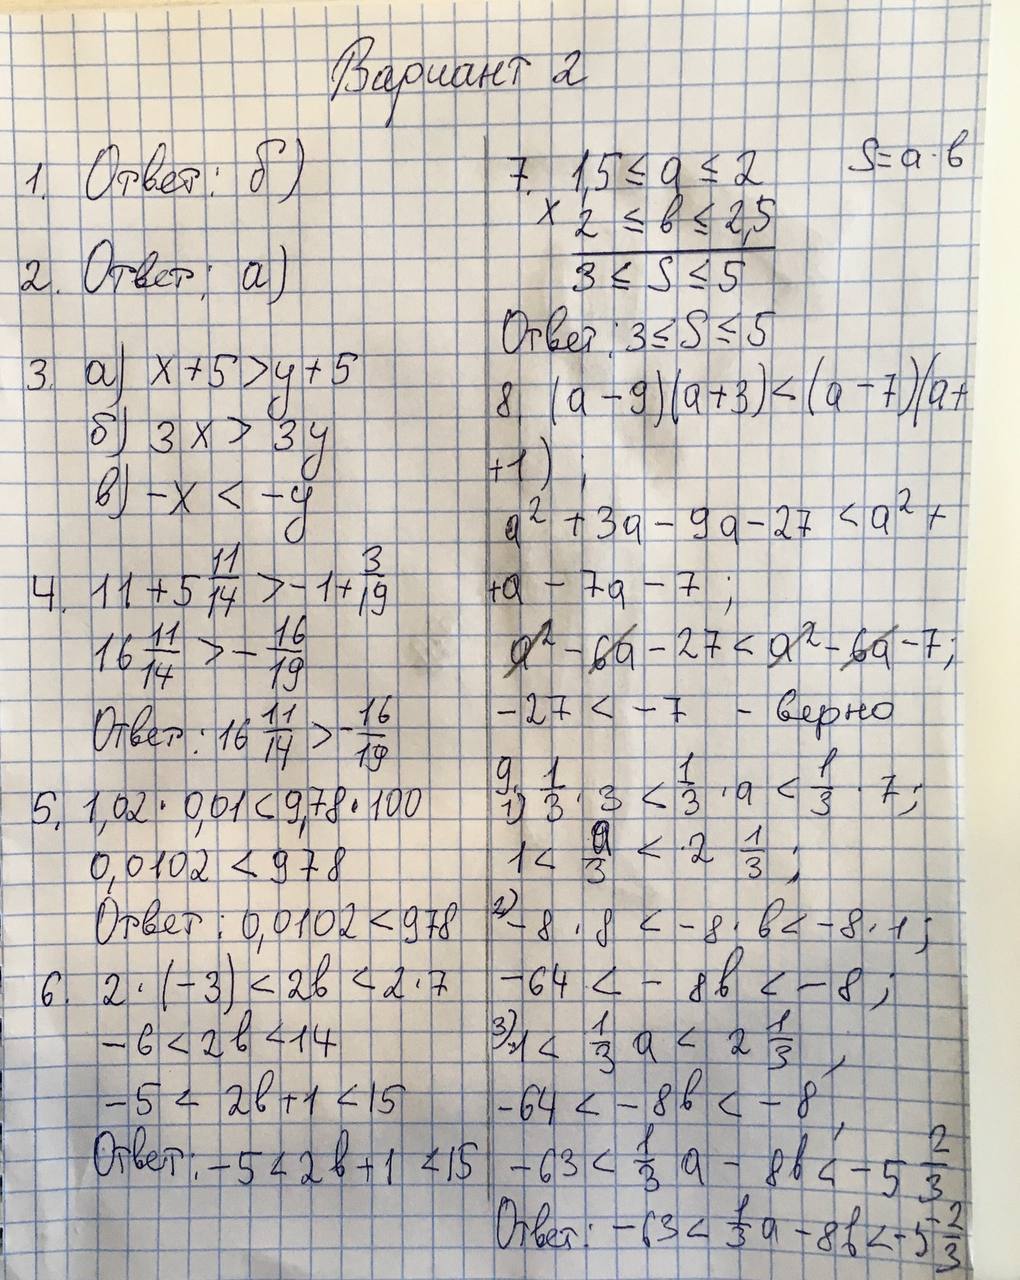 Вариант 2
1. Ответ: б)
2. Ответ: а)
3. а) x + 5 > y + 5
б) 3x > 3y
в) -x < -y
4. 11 + 5 11/14 > -1 + 3/19
16 11/14 > - 16/19
Ответ: 16 11/14 > - 16/19
5. 1,02 · 0,01 < 9,78 · 100
0,0102 < 978
Ответ: 0,0102 < 978
6. 2 · (-3) < 2b < 2 · 7
-6 < 2b < 14
-5 < 2b + 1 < 15
Ответ: -5 < 2b + 1 < 15
7. 1,5 ≤ a ≤ 2 S = a · b
x 2 ≤ b ≤ 2,5
3 ≤ S ≤ 5
Ответ: 3 ≤ S ≤ 5
8. (a - 9)(a + 3) < (a - 7)(a +
+ 1) ;
a² + 3a - 9a - 27 < a² +
+ a - 7a - 7 ;
a² - 6a - 27 < a² - 6a - 7;
-27 < -7 - верно
9. 1) 1/3 · 3 < 1/3 · a < 1/3 · 7;
1 < a/3 < 2 1/3 ;
2) -8 · 8 < -8 · b < -8 · 1;
-64 < -8b < -8;
3) 1 < 1/3 a < 2 1/3 ;
-64 < -8b < -8 ;
-63 < 1/3 a - 8b < -5 2/3
Ответ: -63 < 1/3 a - 8b < -5 2/3